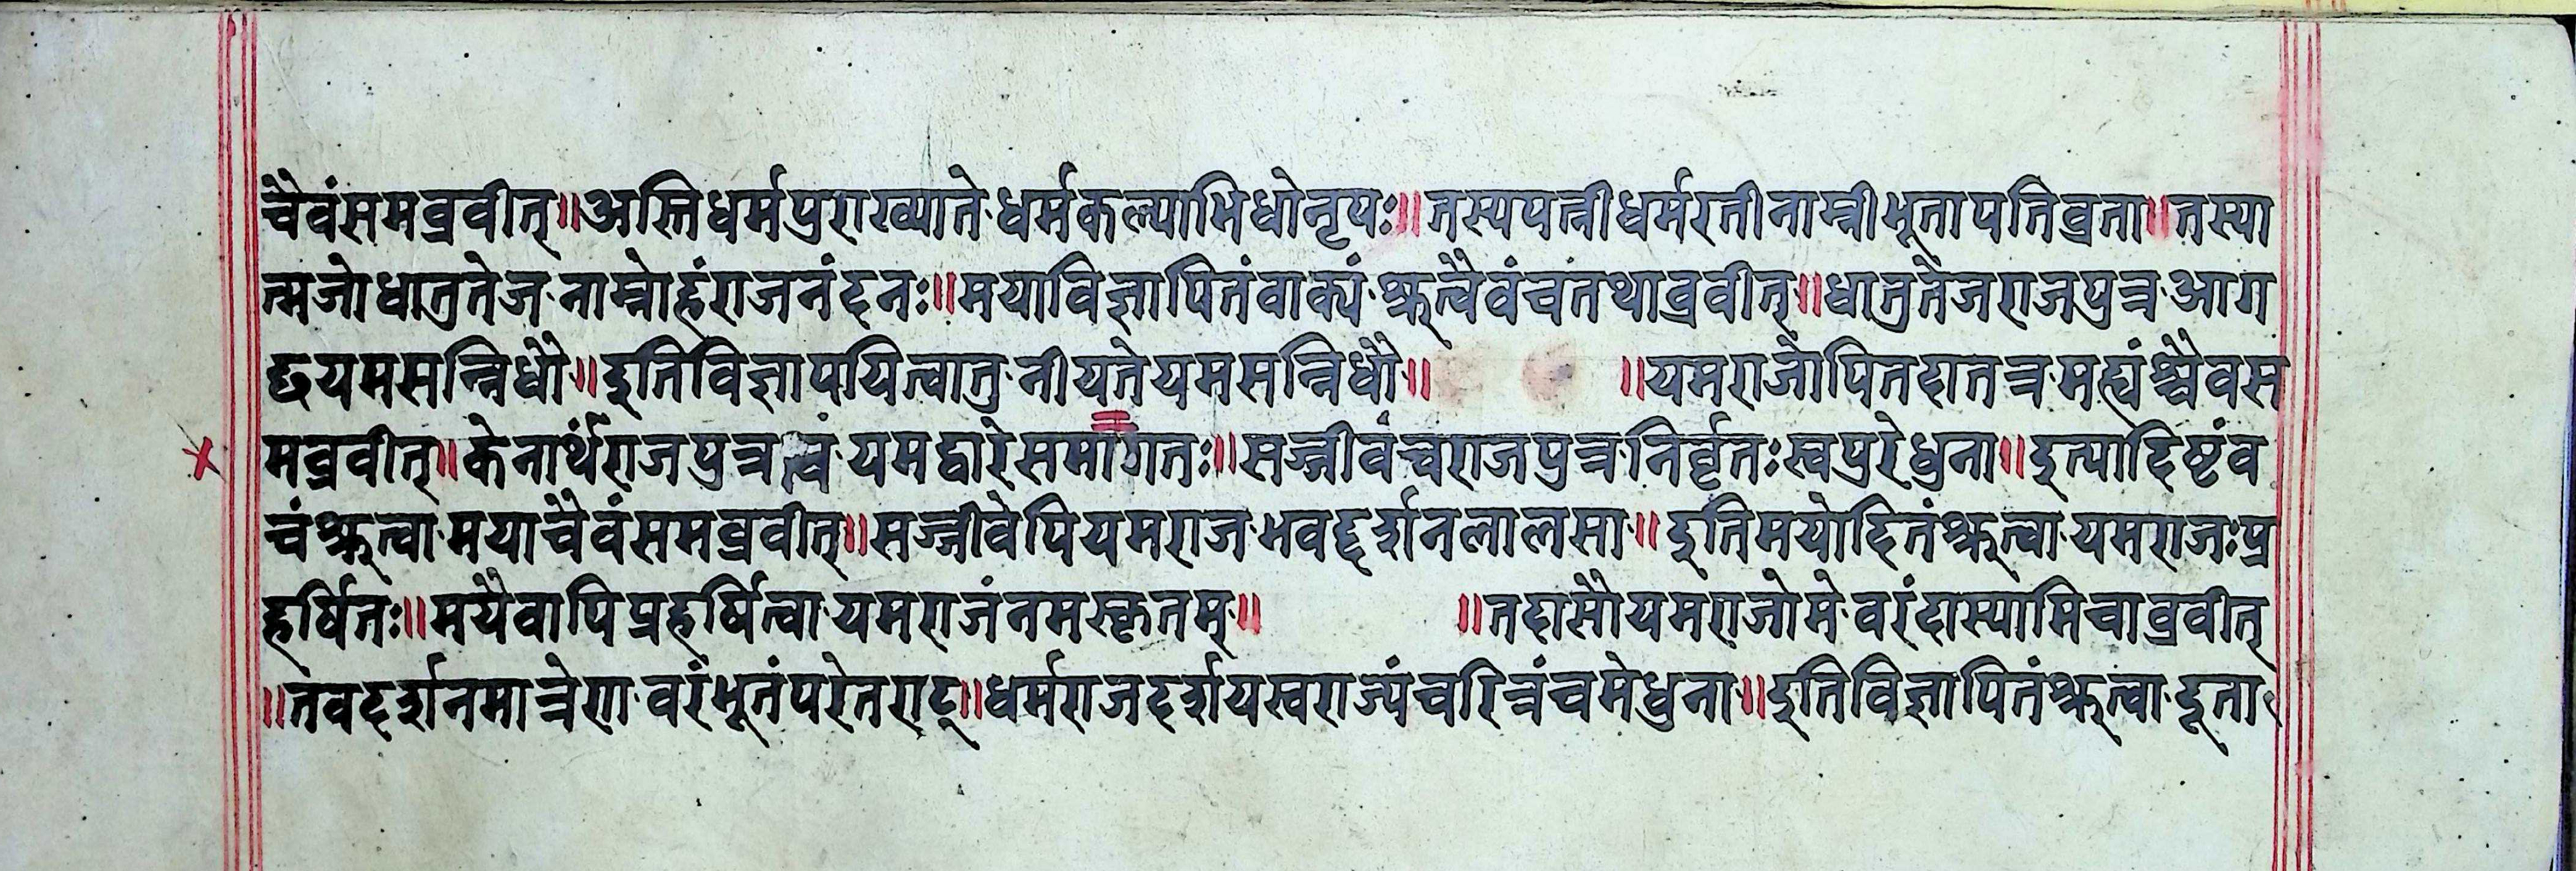 चैवंसमब्रवीत्॥अस्तिधर्मपुराख्याते धर्मकल्पाभिधोनृपः॥तस्यपत्नीधर्मरतीनाम्नीभूतापतिव्रता॥तस्या
त्मजोधातुतेज नाम्नोहंराजनंदनः॥मयाविज्ञापितंवाक्यं श्रुत्वैवंचतथाब्रवीत्॥धातुतेजराजपुत्र आग
छयमसन्निधौ॥इतिविज्ञापयित्वातु नीयतेयमसन्निधौ॥ ॥यमराजोपितदातत्र मह्यंश्चैवस
मब्रवीत्॥केनार्थंराजपुत्रत्वं यमद्वारेसमागतः॥सज्जीवंचराजपुत्र निर्वृतःस्वपुरेधुना॥इत्यादिष्टंव
चंश्रुत्वा मयाचैवंसमब्रवीत्॥सज्जीवेपियमराज भवद्दर्शनलालसा॥इतिमयोदितंश्रुत्वा यमराजःप्र
हर्षितः॥मयैवापिप्रहर्षित्वा यमराजंनमस्कृतम्॥ ॥तदासौयमराजोमे वरंदास्यामिचाब्रवीत्
॥तवदर्शनमात्रेण वरंभूतंपरेतराट्॥धर्मराजदर्शयस्वराज्यंचरित्रंचमेधुना॥इतिविज्ञापितंश्रुत्वा दूता